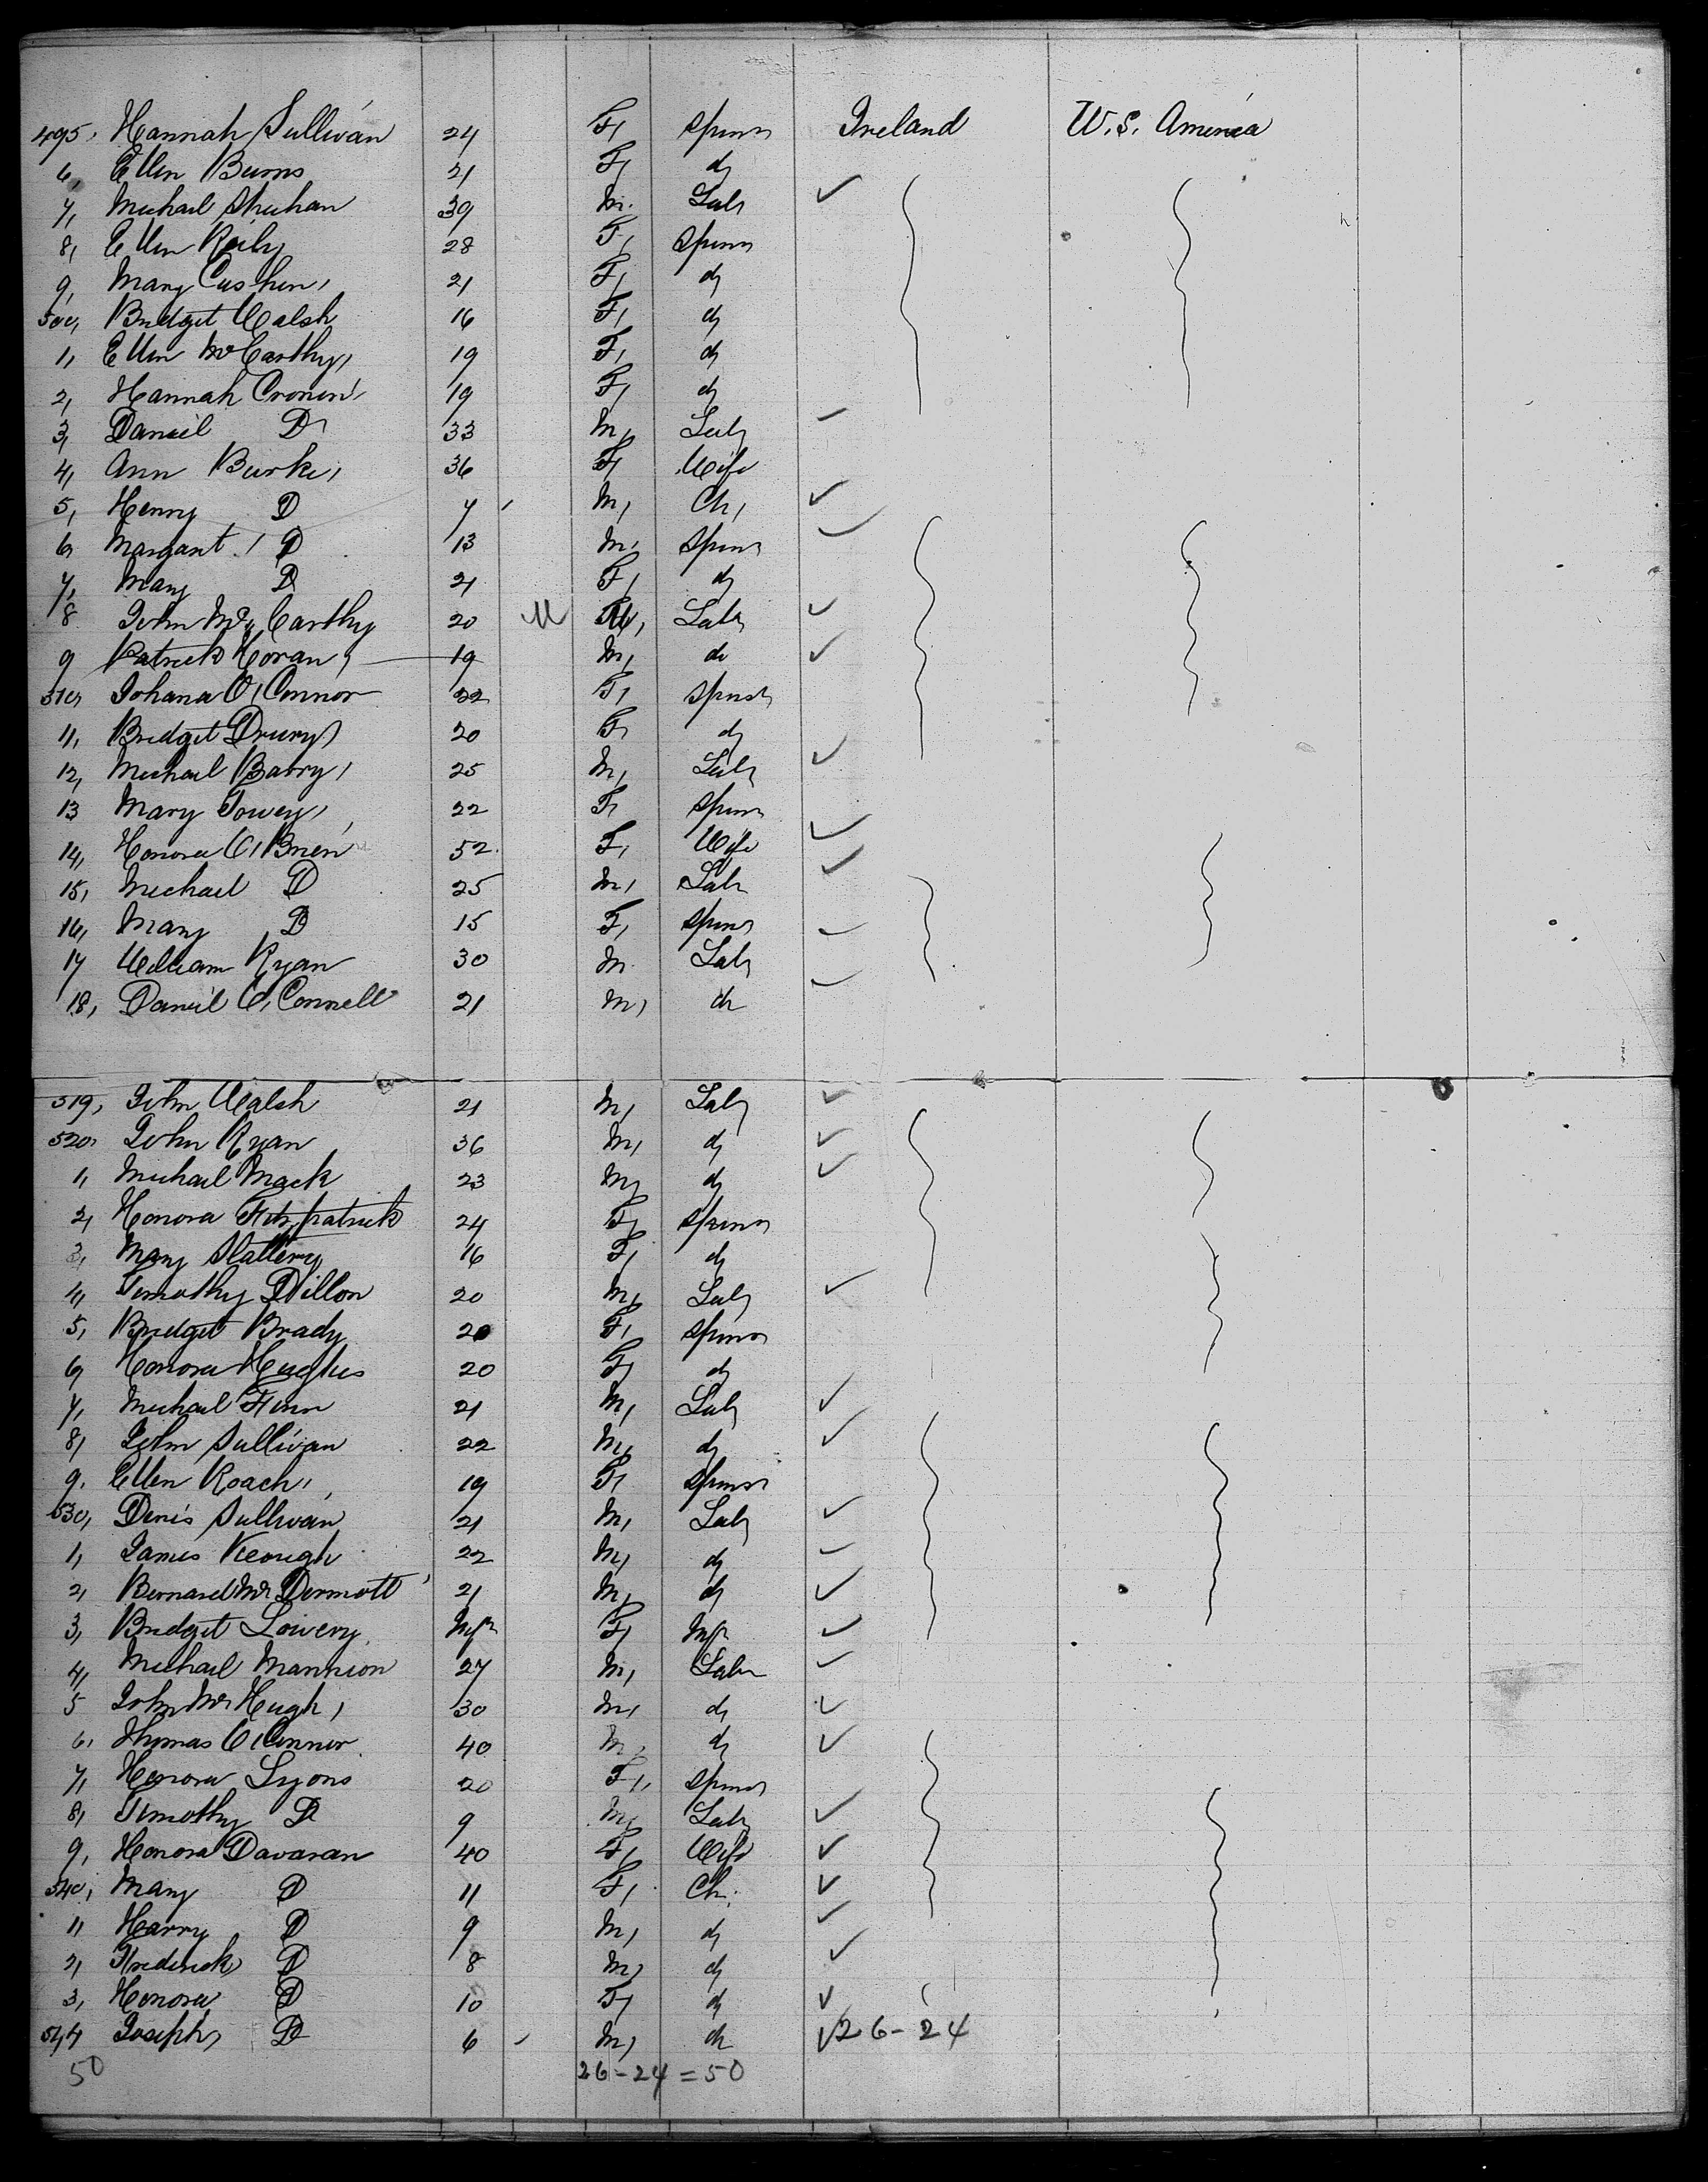 495, Hannah Sullivan 24 F, Spinr Ireland U.S. America
6, Ellen Burns 21 F, do
7, Michael Shehan 39 M. Labr
8, Ellen Reily 28 F, Spinr
9, Mary Cashen, 21 F, do
500, Bridget Walsh 16 F, do
1, Ellen McCarthy, 19 F, do
2, Hannah Cronin, 19 F, do
3, Daniel D, 33 M, Labr
4, Ann Burke, 36 F, Wife
5, Henry D 7 M, Ch,
6, Margaret D 13 M, Spinr
7, Mary D 21 F, do
8 John McCarthy 20 M M, Labr
9 Patrick Horan, 19 M, do
510, Johana O'Connor 22 F, Spinst
11, Bridget Drury, 20 F, do
12, Michael Barry, 25 M, Labr
13 Mary Towey, 22 F, Spinr
14, Honora O'Brien 52 F, Wife
15, Michael D 25 M, Labr
16, Mary D 15 F, Spinr
17 William Ryan 30 M. Labr
18, Daniel O'Connell 21 M, do
519, John Walsh 21 M, Labr
520, John Ryan 36 M, do
1, Michael Mack 23 M, do
2, Honora Fitzpatrick 24 F, Spinr
3, Mary Slattery 16 F, do
4, Timothy Dillon 20 M, Labr
5, Bridget Brady 20 F, Spinr
6, Honora Hughes 20 F, do
7, Michael Finn 21 M, Labr
8, John Sullivan 22 M, do
9, Ellen Roach, 19 F, Spinr
530, Denis Sullivan 21 M, Labr
1, James Keough 22 M, do
2, Bernard McDermott 21 M, do
3, Bridget Lowery F,
4, Michael Mannion 27 M, Labr
5 John McHugh, 30 M, do
6, Thomas O'Connor 40 M, do
7, Honora Lyons 20 F, Spinr
8, Timothy D 9 M, Labr
9, Honora Davaran 40 F, Wife
540, Mary D 11 F, Ch.
1, Harry D 9 M, do
2, Frederick, D 8 M, do
3, Honora D 10 F, do
544 Joseph, D 6 M, do 26-24
50 26-24=50